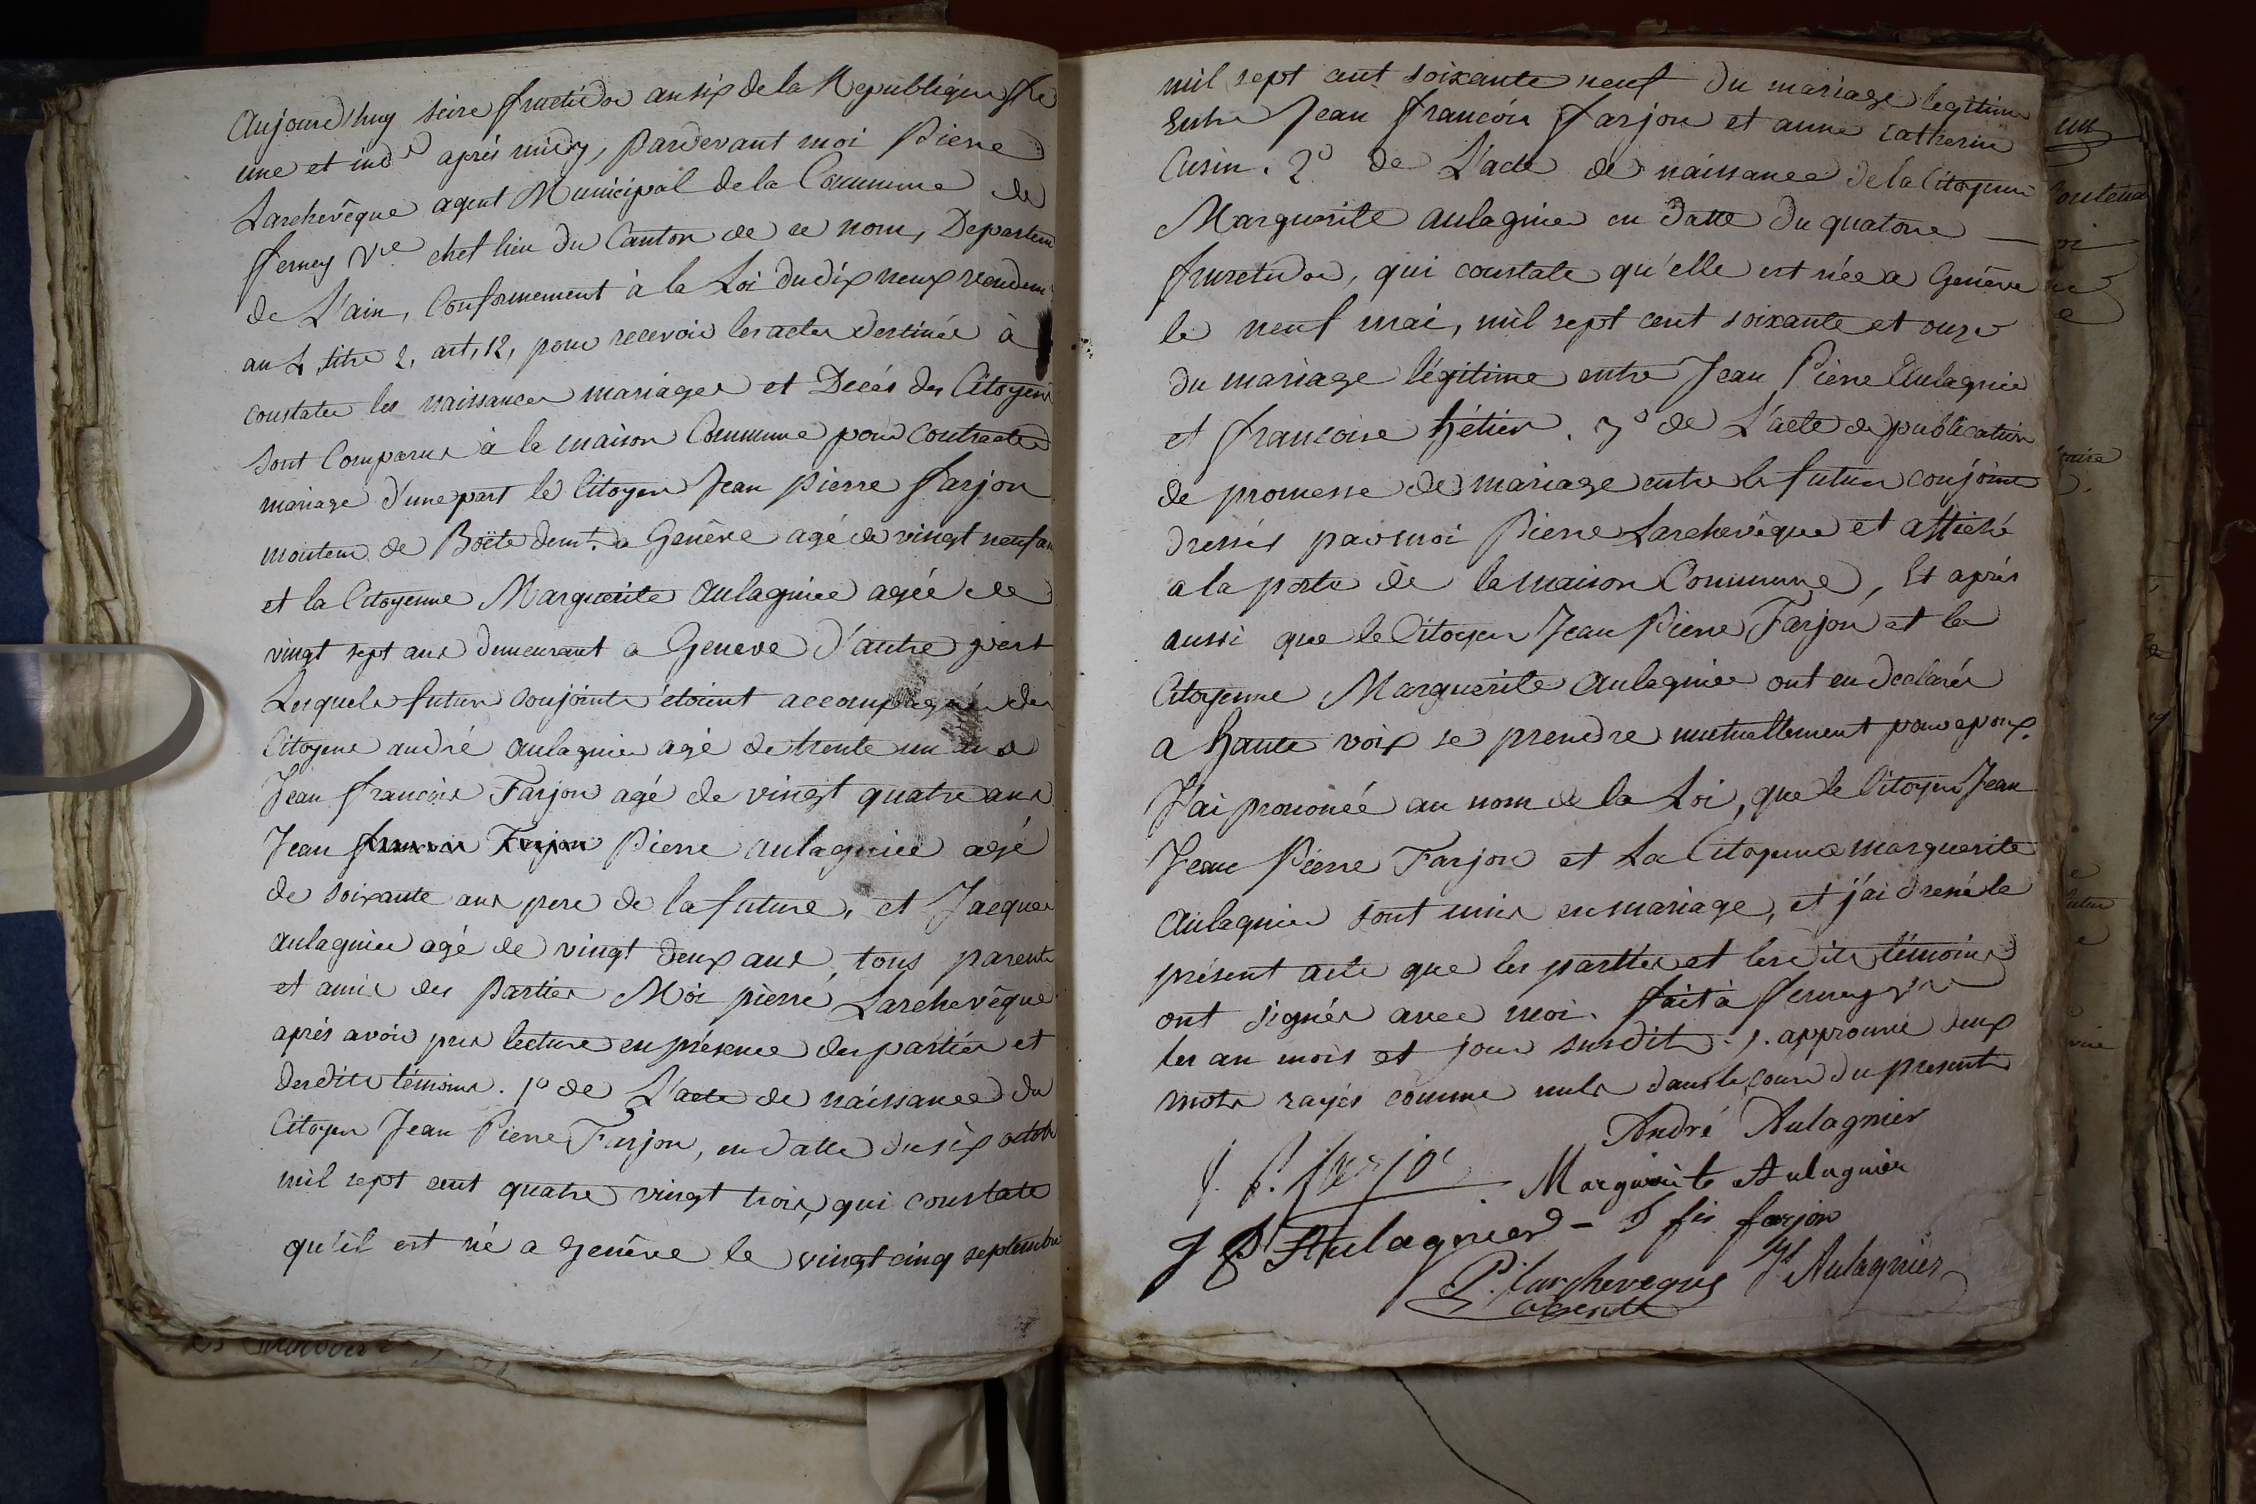 Aujourd'huy seize fructidor an six de la Republique f.se
une et ind.e après midy, pardevant moi Pierre
Larchevêque agent Municipal de la Commune de
ferney V.re chef lieu du Canton de ce nom, Departem
de L'ain, Conformement à la Loi du dix neuf vendem
an 4, titre 2, art, 12, pour recevoir les actes destinés à
constater les naissances mariages et Décés des Citoyens
sont Comparus à la maison Commune pour contracter
mariage d'une part le Citoyen Jean Pierre farjon
monteur de Boëte dem.t a Genêve agé de vingt neuf an
et la Citoyenne Marguerite aulagnier agée de
vingt sept ans demeurant a Geneve d'autre part
Lesquels futurs conjoints étoient accompagnés des
Citoyens andré aulagnier agé de trente un ans
Jean francois Farjon agé de vingt quatre ans
Jean francois Farjon Pierre aulagnier agé
de soixante ans pere de la future, et Jacques
aulagnier agé de vingt deux ans, tous parents
et amis des Parties Moi pierre Larchevêque
après avoir pris lecture en présence des parties et
desdits témoins. 1° de L'acte de naissance du
Citoyen Jean Pierre Farjon, en datte du six octob
mil sept cent quatre vingt trois, qui constate
qu'il est né a genêve le vingt cinq septembre
mil sept cent soixante neuf du mariage légitime
Entre Jean francois farjon et anne catherine
Cusin. 2° de L'acte de naissance de la Citoyenne
Marguerite aulagnier en datte du quatorze —
fructidor, qui constate qu'elle est née a Genêve
le neuf mai, mil sept cent soixante et onze
du mariage légitime entre Jean Pierre Aulagnier
et francoise hétier. 3° de L'acte de publication
de promesse de mariage entre les futurs conjoints
dressés par moi Pierre Larchevêque et affiché
a la porte de la maison Commune, Et après
aussi que le Citoyen Jean Pierre Farjon et la
Citoyenne Marguerite aulagnier ont eu declarés
a haute voix se prendre mutuellement pour epoux,
J'ai prononcé au nom de la Loi, que le Citoyen Jean
Jean Pierre Farjon et La Citoyenne marguerite
aulagnier sont unis en mariage, et j'ai dressé le
présent acte que les parties et lesdits témoins
ont signés avec moi. fait à ferney V.re
les an mois et jour susdits. J. approuvé deux
mots rayés comme nuls dans le cours du present
André Aulagnier
J. P. farjon Marguerite Aulagnier
J P Aulagnier – J fis farjon
P. Larcheveque Js Aulagnier
agente